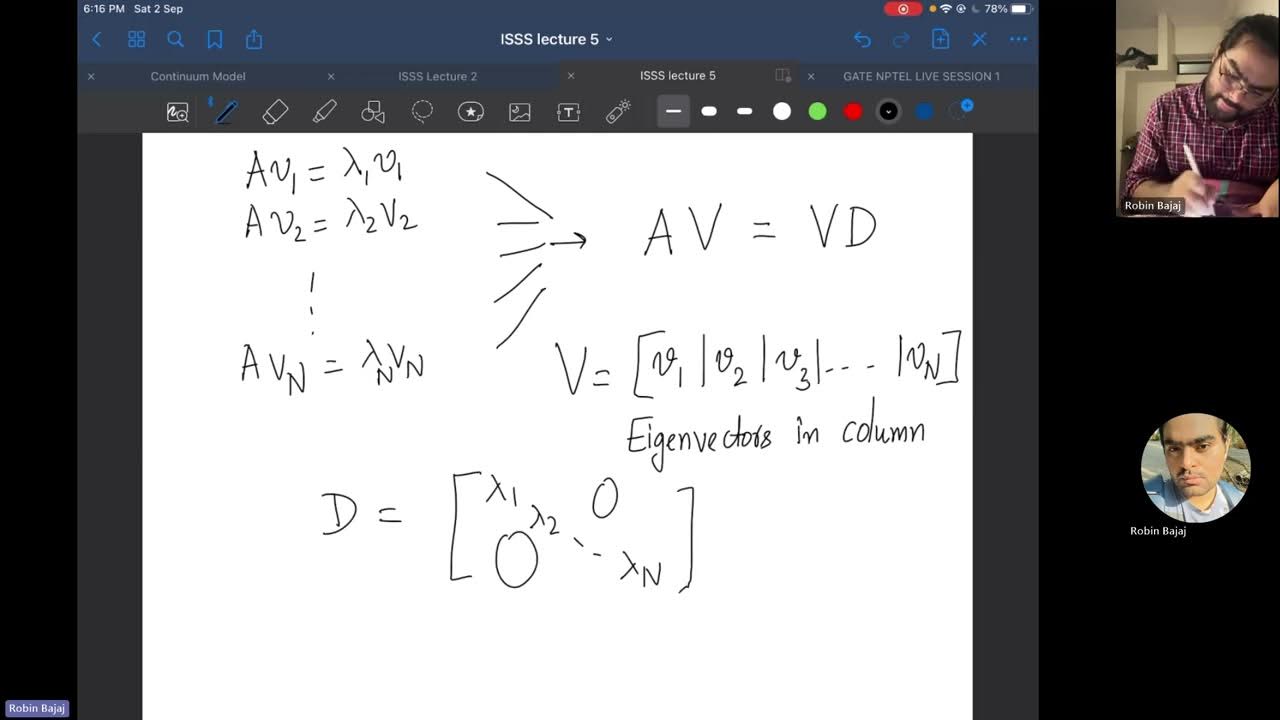 6:16 PM Sat 2 Sep
78%
ISSS lecture 5
Continuum Model
ISSS Lecture 2
ISSS lecture 5
GATE NPTEL LIVE SESSION 1
Av₁ = λ₁v₁
Av₂ = λ₂v₂
⋮
Av_N = λ_N v_N
→ AV = VD
V = [v₁ | v₂ | v₃ | ... | v_N]
Eigenvectors in column
D = [λ₁ λ₂ 0 0 ⋱ λN]
Robin Bajaj
Robin Bajaj
Robin Bajaj